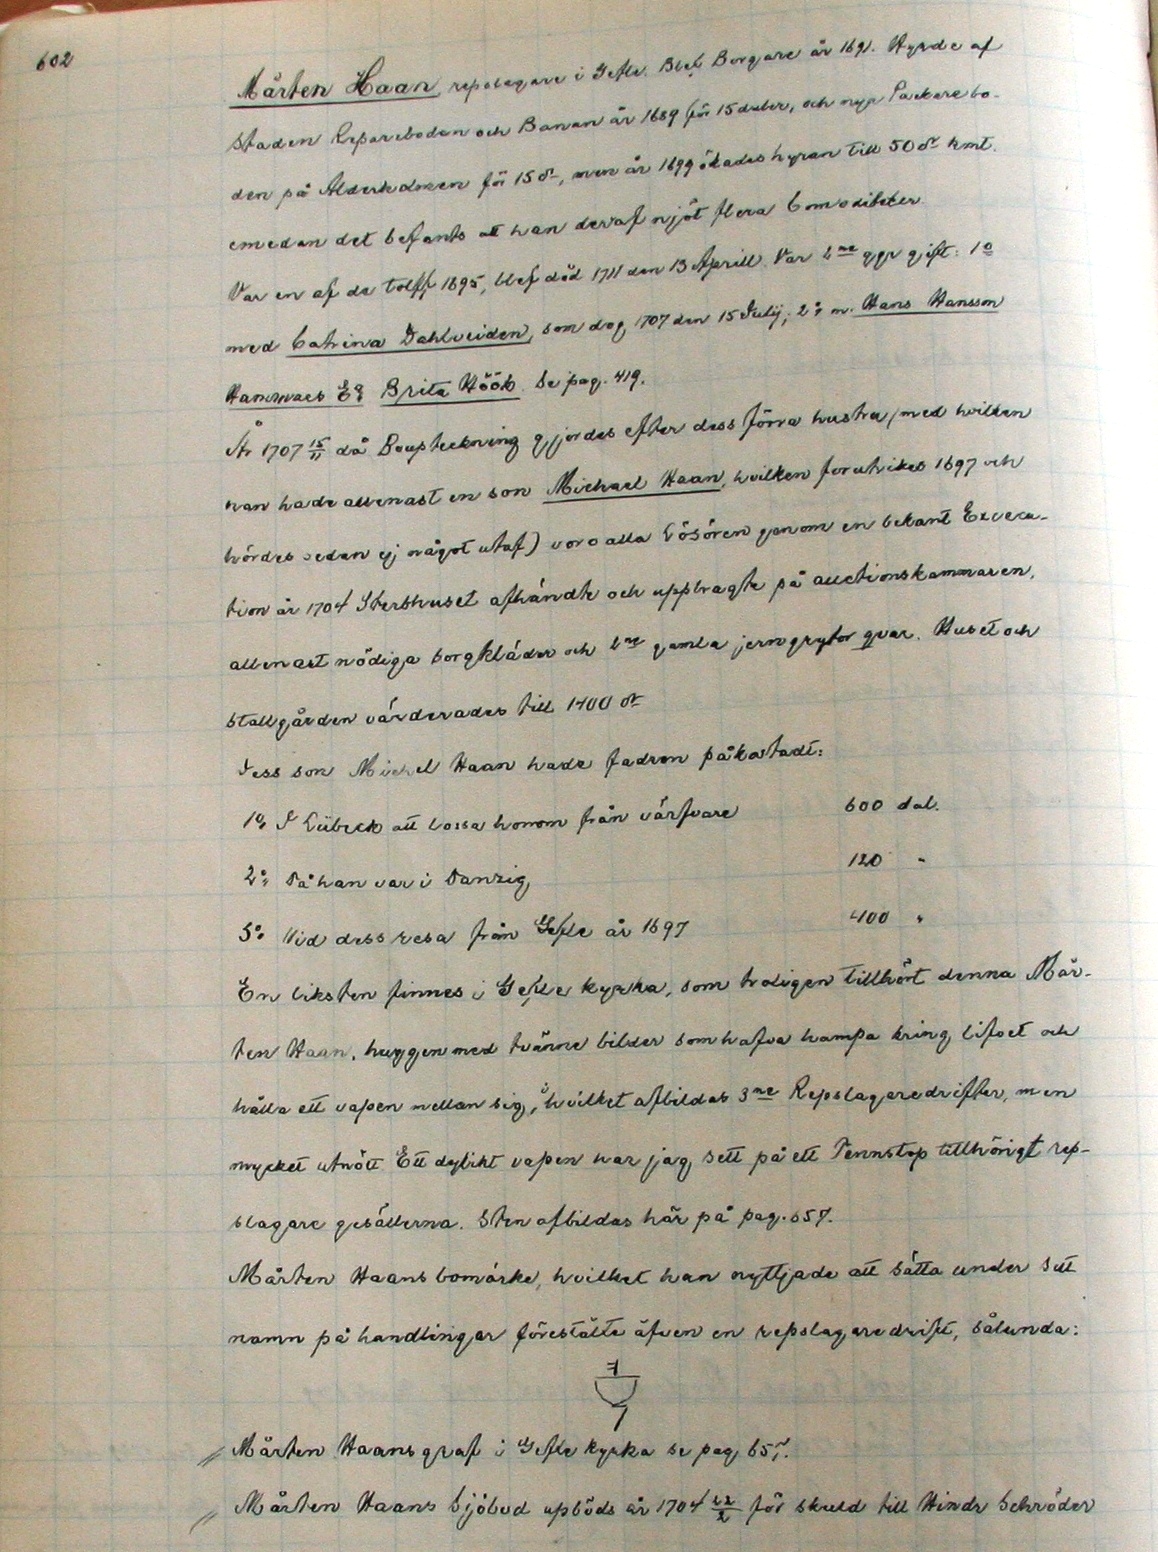 602
Mårten Haan, repslagare i Gefle. Blef Borgare år 1691. Hyrde af
staden Reparebodan och Banan år 1689 för 15 daler, och nya Packarebo-
den på Alderholmen för 15 dr, men år 1699 ökades hyran till 50 dr kmt.
emedan det befants att han deraf njöt flera Comoditeter.
Var en af de tolff 1695, blef död 1711 den 13 Aprill. Var 2ne ggr gift: 1o
med Catrina Dahlweiden, som dog 1707 den 15 Julij; 2o m. Hans Hansson
Hammars Ea Brita Höök. Se pag. 419.
År 1707 15/11 då Boupteckning gjordes efter dess förra hustru (med hvilken
han hade allenast en son Michael Haan, hvilken for utrikes 1697 och
hördes sedan ej något utaf) voro alla Lösören genom en bekant Execu-
tion år 1704 Sterbhuset afhändte och uppbragte på auctionskammaren,
allenast nödiga sorgkläder och 2ne gamla jerngrytor qvar. Huset och
stallgården värderades till 1400 dr
Dess son Michel Haan hade fadren påkostadt:
1o I Lübeck att lossa honom från värfvare 600 dal.
2o Då han var i Danzig 120 "
3o Vid dess resa från Gefle år 1697 400 "
En liksten finnes i Gefle kyrka, som troligen tillhört denna Mår-
ten Haan, huggen med tvänne bilder som hafva hampa kring lifvet och
hålla ett vapen mellan sig, i hvilket afbildas 3ne Repslagaredrifter, men
mycket utnött. Ett dylikt vapen har jag sett på ett Tennstop tillhörigt rep-
slagare gesällerna. Sten afbildas här på pag. 657.
Mårten Haans bomärke, hvilket han nyttjade att sätta under sitt
namn på handlingar förestälte äfven en repslagaredrift, sålunda:
Mårten Haans graf i Gefle kyrka se pag 657.
Mårten Haans Sjöbod upböds år 1704 22/2 för skuld till Hindr Schröder